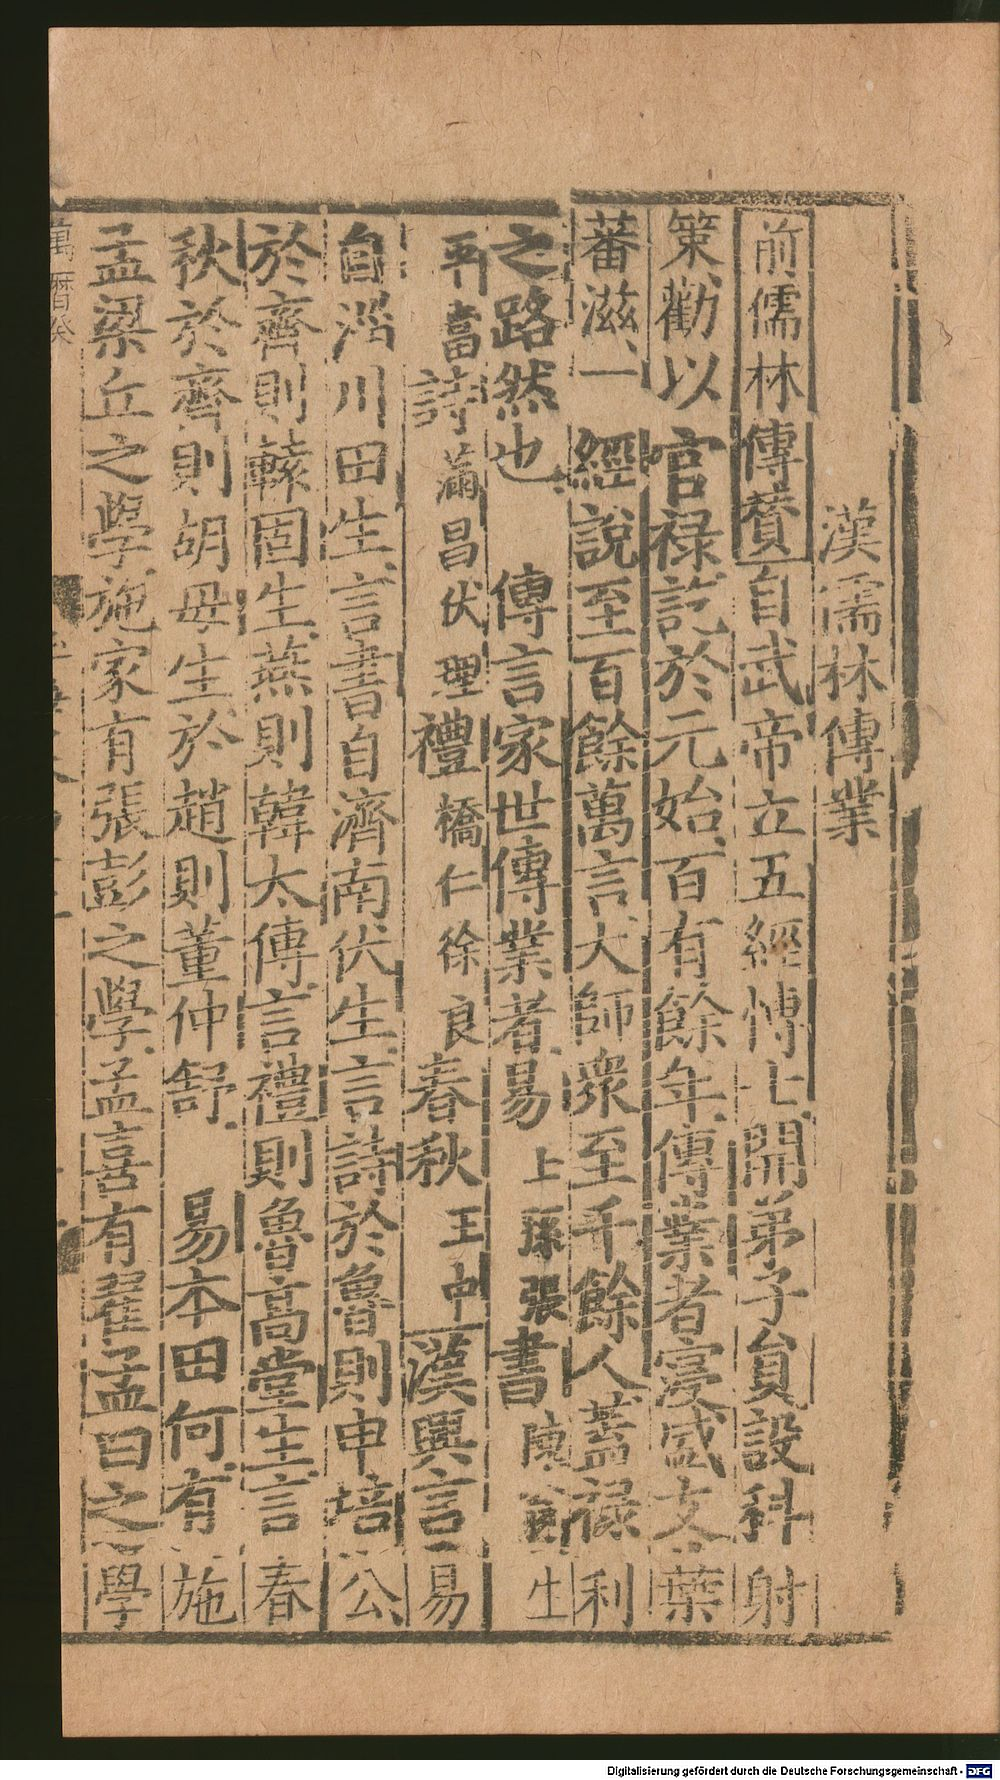 漢儒林傳業
前儒林傳贊自武帝立五經博士開弟子員設科射
策勸以官祿訖於元始百有餘年傳業者寖盛支葉
蕃滋一經說至百餘萬言大師衆至千餘人蓋祿利
之路然也 傳言家世傳業者易上孫張書陳翁生
平當詩滿昌伏理禮橋仁徐良春秋王中漢興言易
自淄川田生言書自濟南伏生言詩於魯則申培公
於齊則轅固生燕則韓太傅言禮則魯高堂生言春
秋於齊則胡母生於趙則董仲舒 易本田何有施
孟梁丘之學施家有張彭之學孟喜有翟孟白之學
萬曆癸
Digitalisierung gefördert durch die Deutsche Forschungsgemeinschaft - DFG